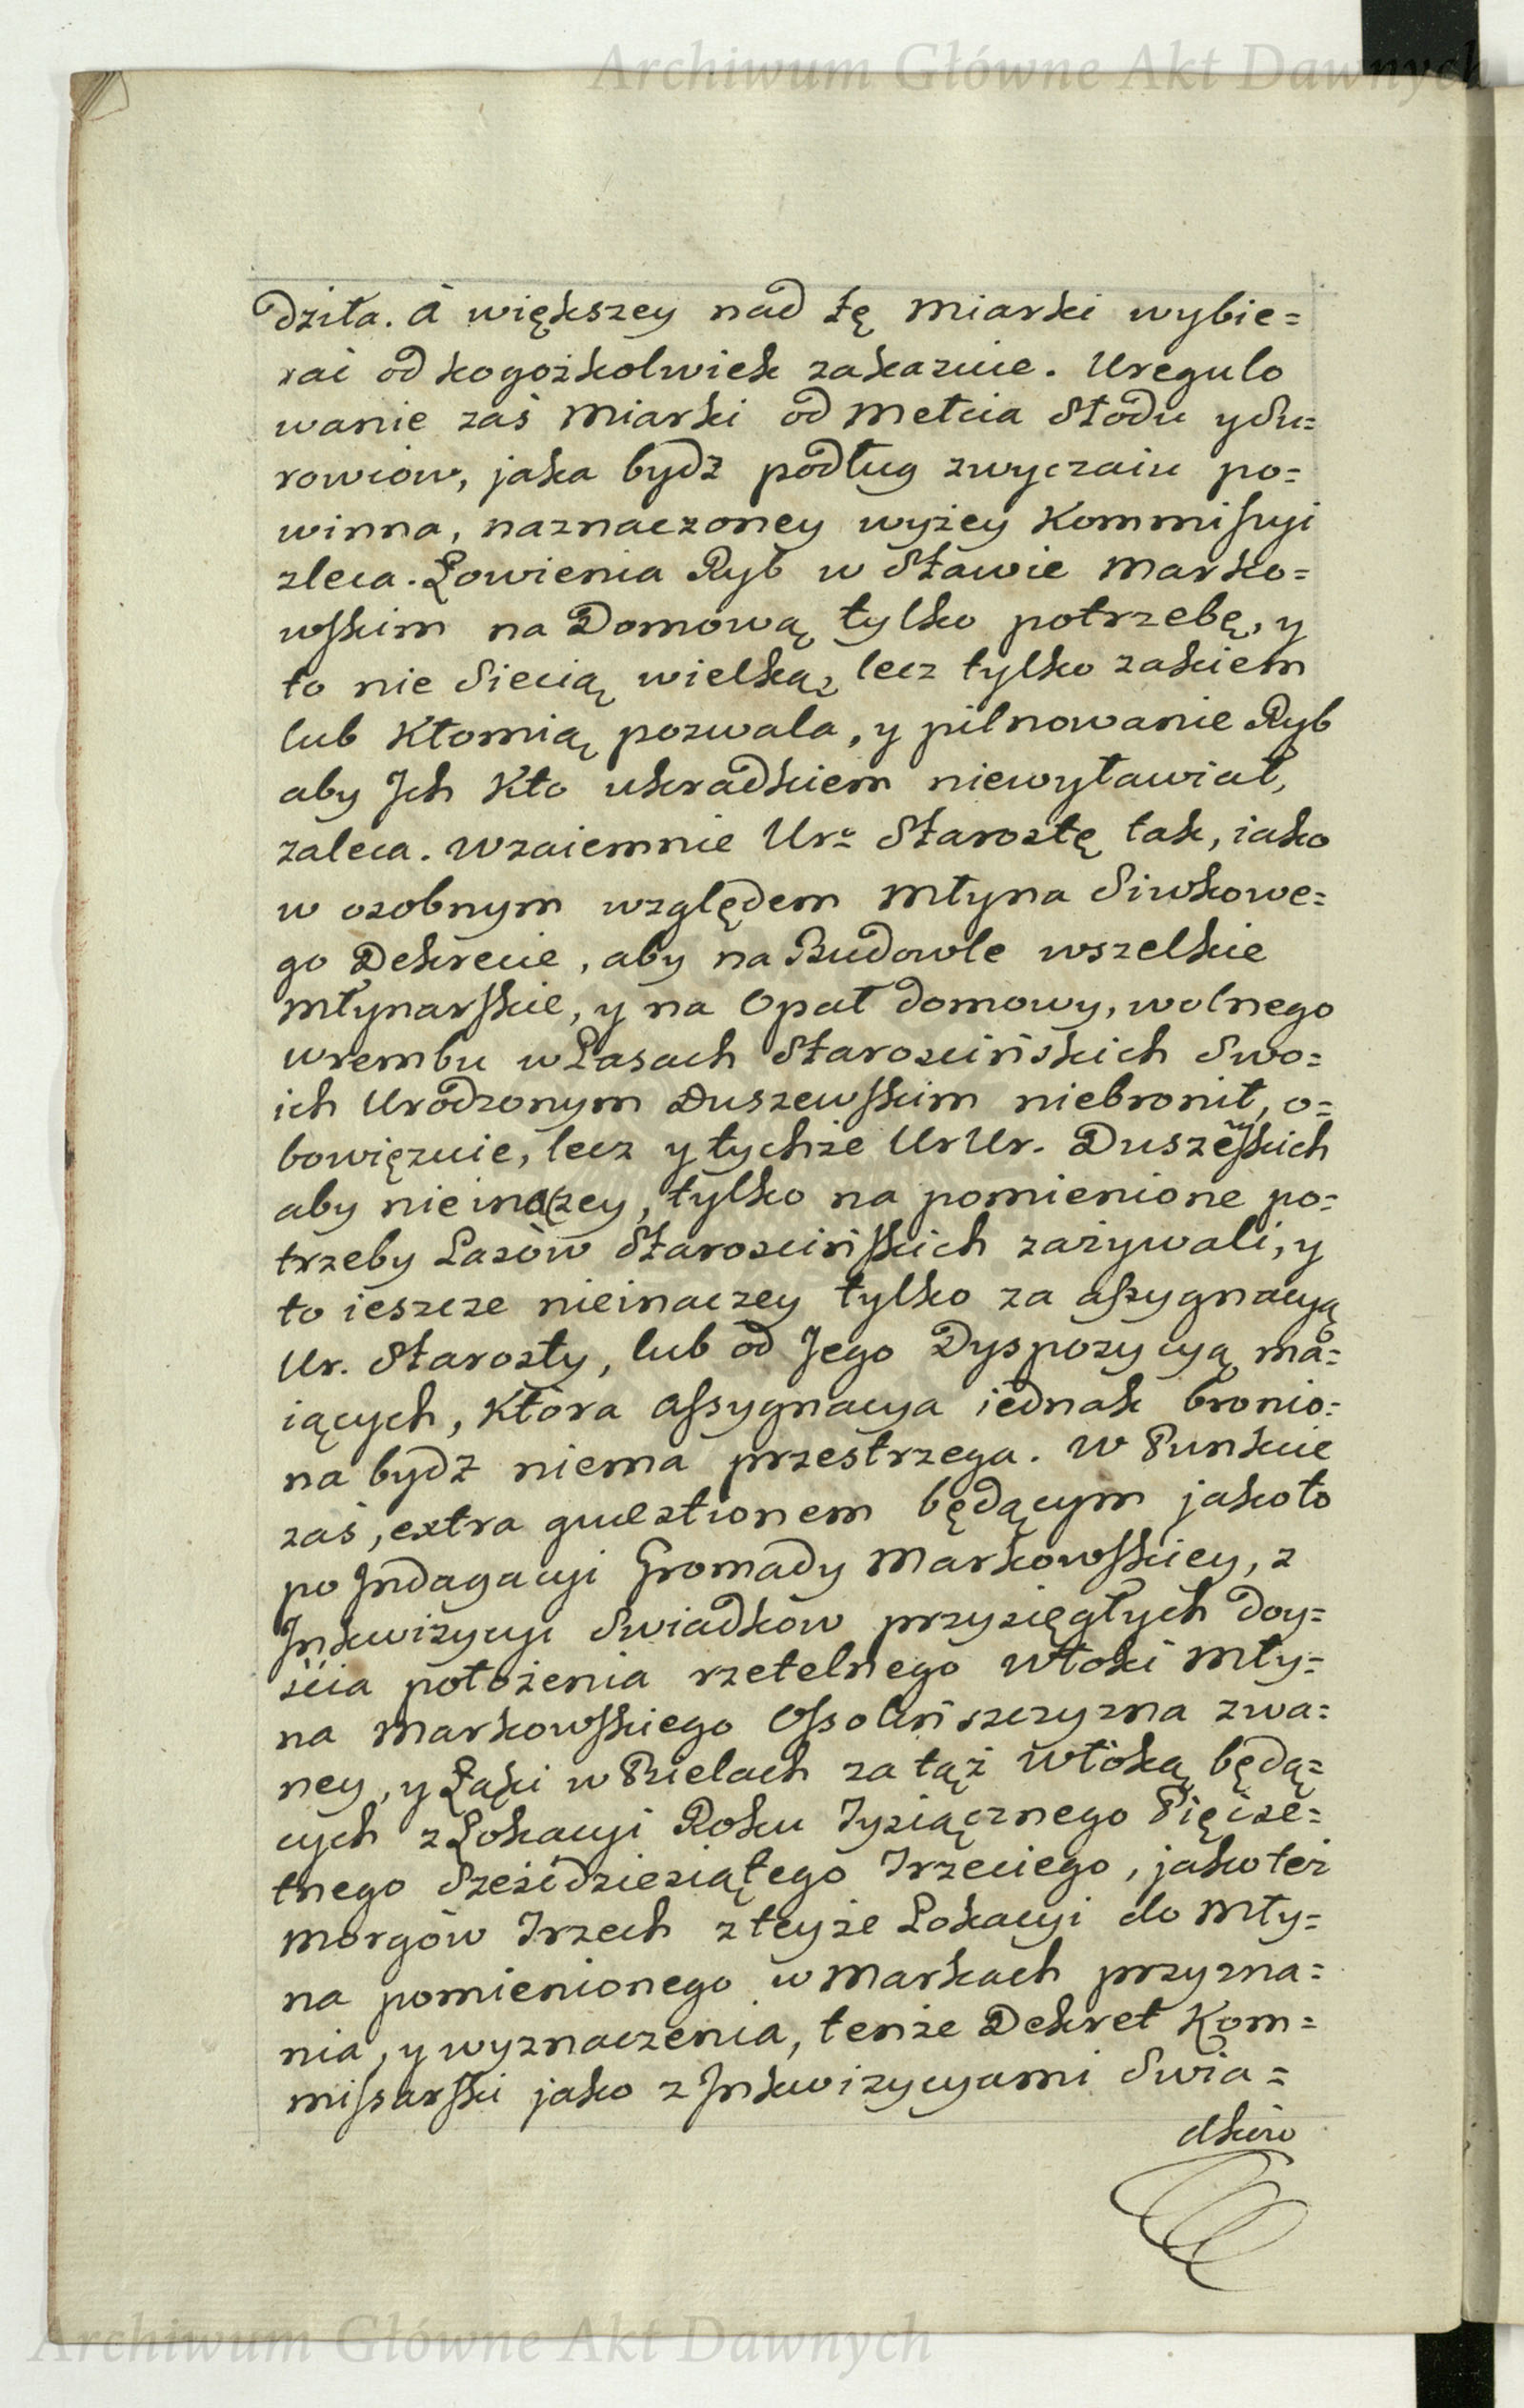 Archiwum Główne Akt Dawnych
dziła. A większey nad tę Miarki wybie=
rać od kogożkolwiek zakazuie. Uregulo
wanie zaś Miarki od Mełcia Słodu y Su=
rowców, jaka bydź podług zwyczaiu po=
winna, naznaczoney wyżey Kommissyi
zleca. Łowienia Ryb w Stawie Marko=
wskim na Domową tylko potrzebę, y
to nie Siecią wielką, lecz tylko zakiem
lub Kłomią pozwala, y pilnowanie Ryb
aby Ich Kto ukradkiem niewyławiał,
zaleca. Wzaiemnie Ur: Starostę tak, iako
w osobnym względem Młyna Siwkowe=
go Dekrecie, aby na Budowle wszelkie
Młynarskie, y na Opał domowy, wolnego
wrembu w Lasach Starościńskich Swo=
ich Urodzonym Duszewskim niebronił, o=
bowięzuie, lecz y tychże UrUr. Duszewskich
aby nieinaczey, tylko na pomienione po=
trzeby Lasów Starościńskich zażywali, y
to ieszcze nieinaczey tylko za assygnacyą
Ur. Starosty, lub od Jego Dyspozycyą ma=
iących, która assygnacya iednak bronio=
na bydź niema przestrzega. W Punkcie
zaś, extra quæstionem będącym jakoto
po Indagacyi Gromady Markowskiey, z
Inkwizycyi Swiadków przysięgłych doy=
ścia położenia rzetelnego Włoki Mły=
na Markowskiego Ossolińszczyzna zwa=
ney, y Łąki w Bielach za tąż Włoką będą=
cych z Lokacyi Roku Tysiącznego Pięćse=
tnego Sześćdziesiątego Trzeciego, jakoteż
Morgów Trzech z teyże Lokacyi do Mły=
na pomienionego w Markach przyzna=
nia, y wyznaczenia, tenże Dekret Kom=
missarski jako z Inkwizycyami Swia=
dków
Archiwum Główne Akt Dawnych